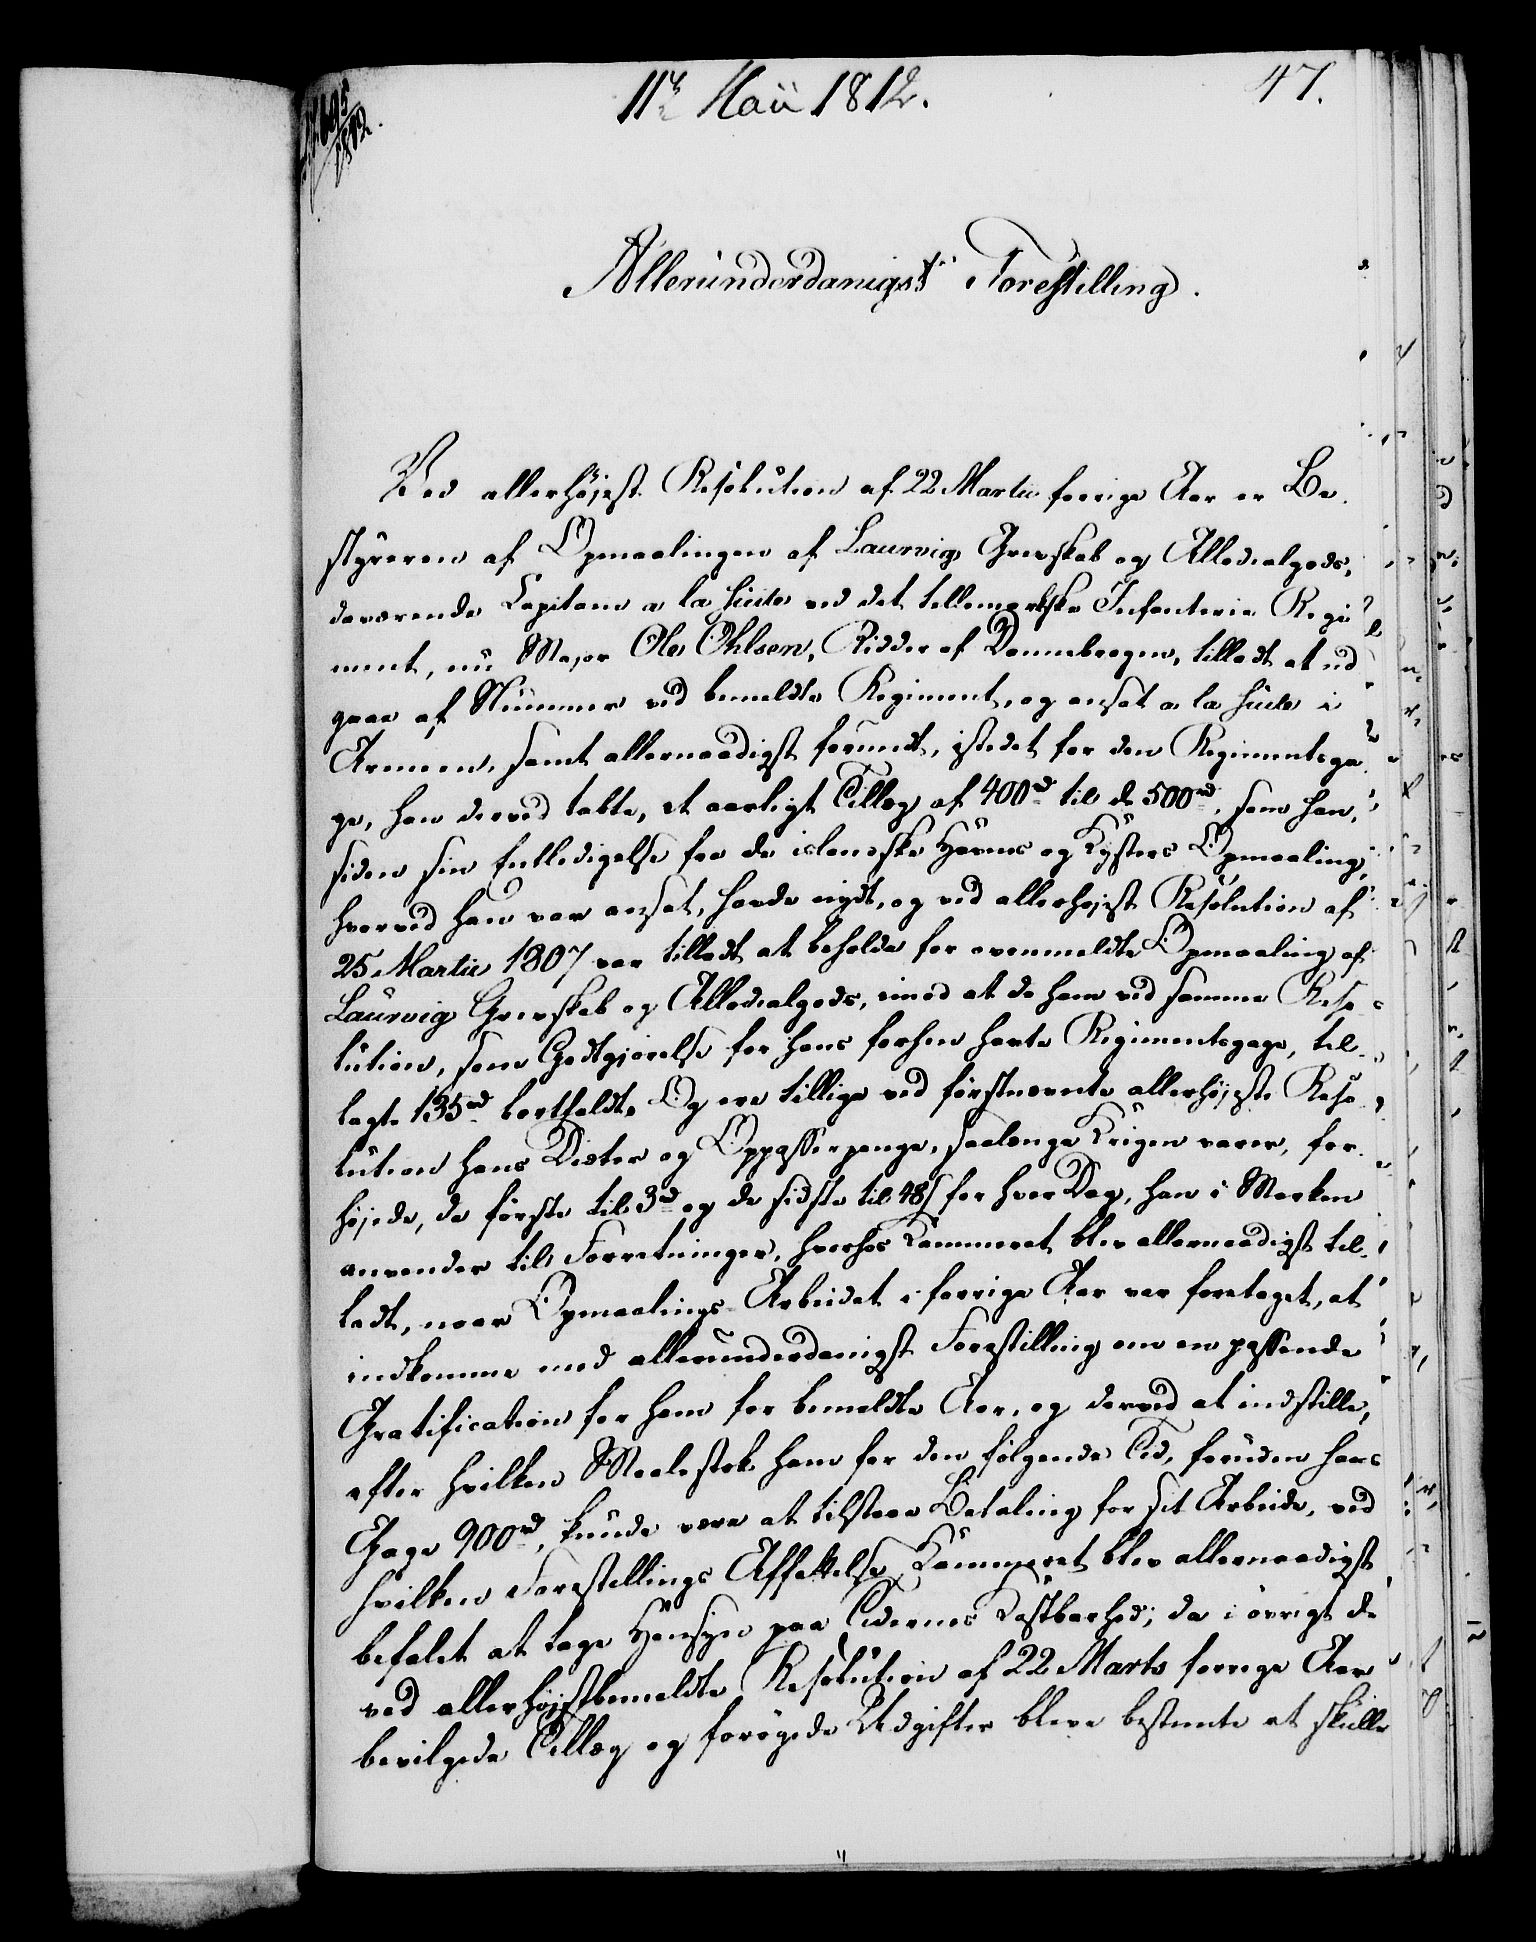 11te Maii 1812.
47.
695
1812.
Allerunderdanigst Forestilling.
Ved allerhöjest Resolution af 22 Martii forrige Aar er Be-
styreren af Opmaalingen af Laurvigs Grevskab og Allodialgods,
daværende Capitain a la suite ved det tellemarkske Infanterie Regi
ment, nu Major Ole Ohlsen, Ridder af Dannebrogen, tilladt at ud
gaae af Nummer ved bemeldte Regiment, og ansat a la suite i
Armeen, samt allernaadigst forundt, istedet for den Regimentsga
ge, han derved tabte, et aarligt Tillæg af 400rd til de 500rd, som han,
siden sin Entledigelse fra de islandske Havnes og Kysters Opmaaling,
hvorved han var ansat, havde nydt, og ved allerhøjest Resolution af
25 Martii 1807 var tilladt at beholde for ovenmeldte Opmaaling af
Laurvig Grevskab og Allodialgods, imod at de ham ved samme Reso-
lution, som Godtgjørelse for hans forhen havte Regimentsgage, til-
lagte 135rd bortfaldt. Og ere tillige ved førstnævnte allerhøjeste Reso-
lution hans Diæter og Oppasserpenge, saalænge Krigen varer, for-
højede, de første til 3rd og de sidste til 48s for hver Dag, han i Marken
anvender til Forretninger, hvorhos Kammeret blev allernaadigst til-
ladt, naar Opmaalings-Arbeidet i forrige Aar var foretaget, at
indkomme med allerunderdanigst Forestilling om en passende
Gratification for ham for bemeldte Aar, og derved at indstille,
efter hvilken Maalestok ham for den følgende Tid, foruden hans
Gage 900rd, kunde være at tilstaae Betaling for sit Arbeide, ved
hvilken Forestillings Affattelse Kammeret blev allernaadigst
befalet at tage Hensyn paa Tidernes Kostbarhed; da i øvrigt de
ved allerhøjstbemeldte Resolution af 22 Marts forrige Aar
bevilgede Tillæg og forøgede Udgifter bleve bestemte at skulle